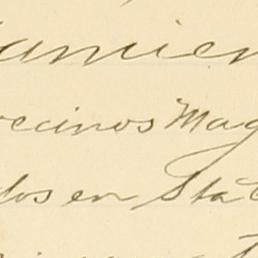 amien
vecinos Mag
dos en Sta